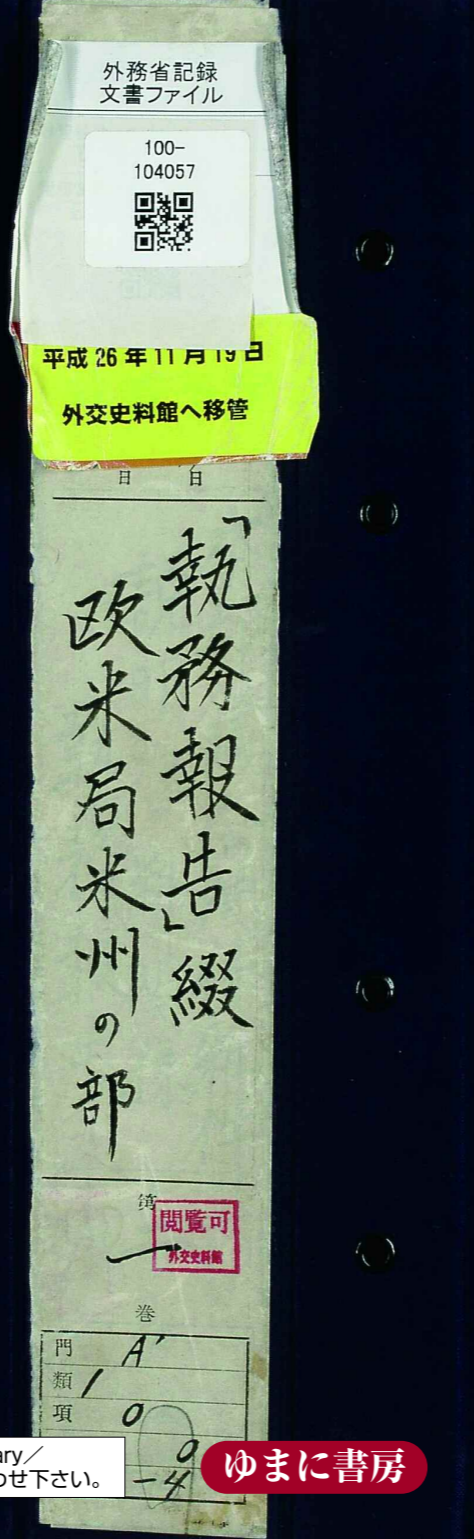 外務省記録
文書ファイル
100-
104057
平成 26 年 11 月 19 日
外交史料館へ移管
日 日
「執務報告」綴
欧米局米州の部
第
一
巻
閲覧可
外交史料館
門 A'
類 1
項 0
0
-4
ary/
わせ下さい。
ゆまに書房